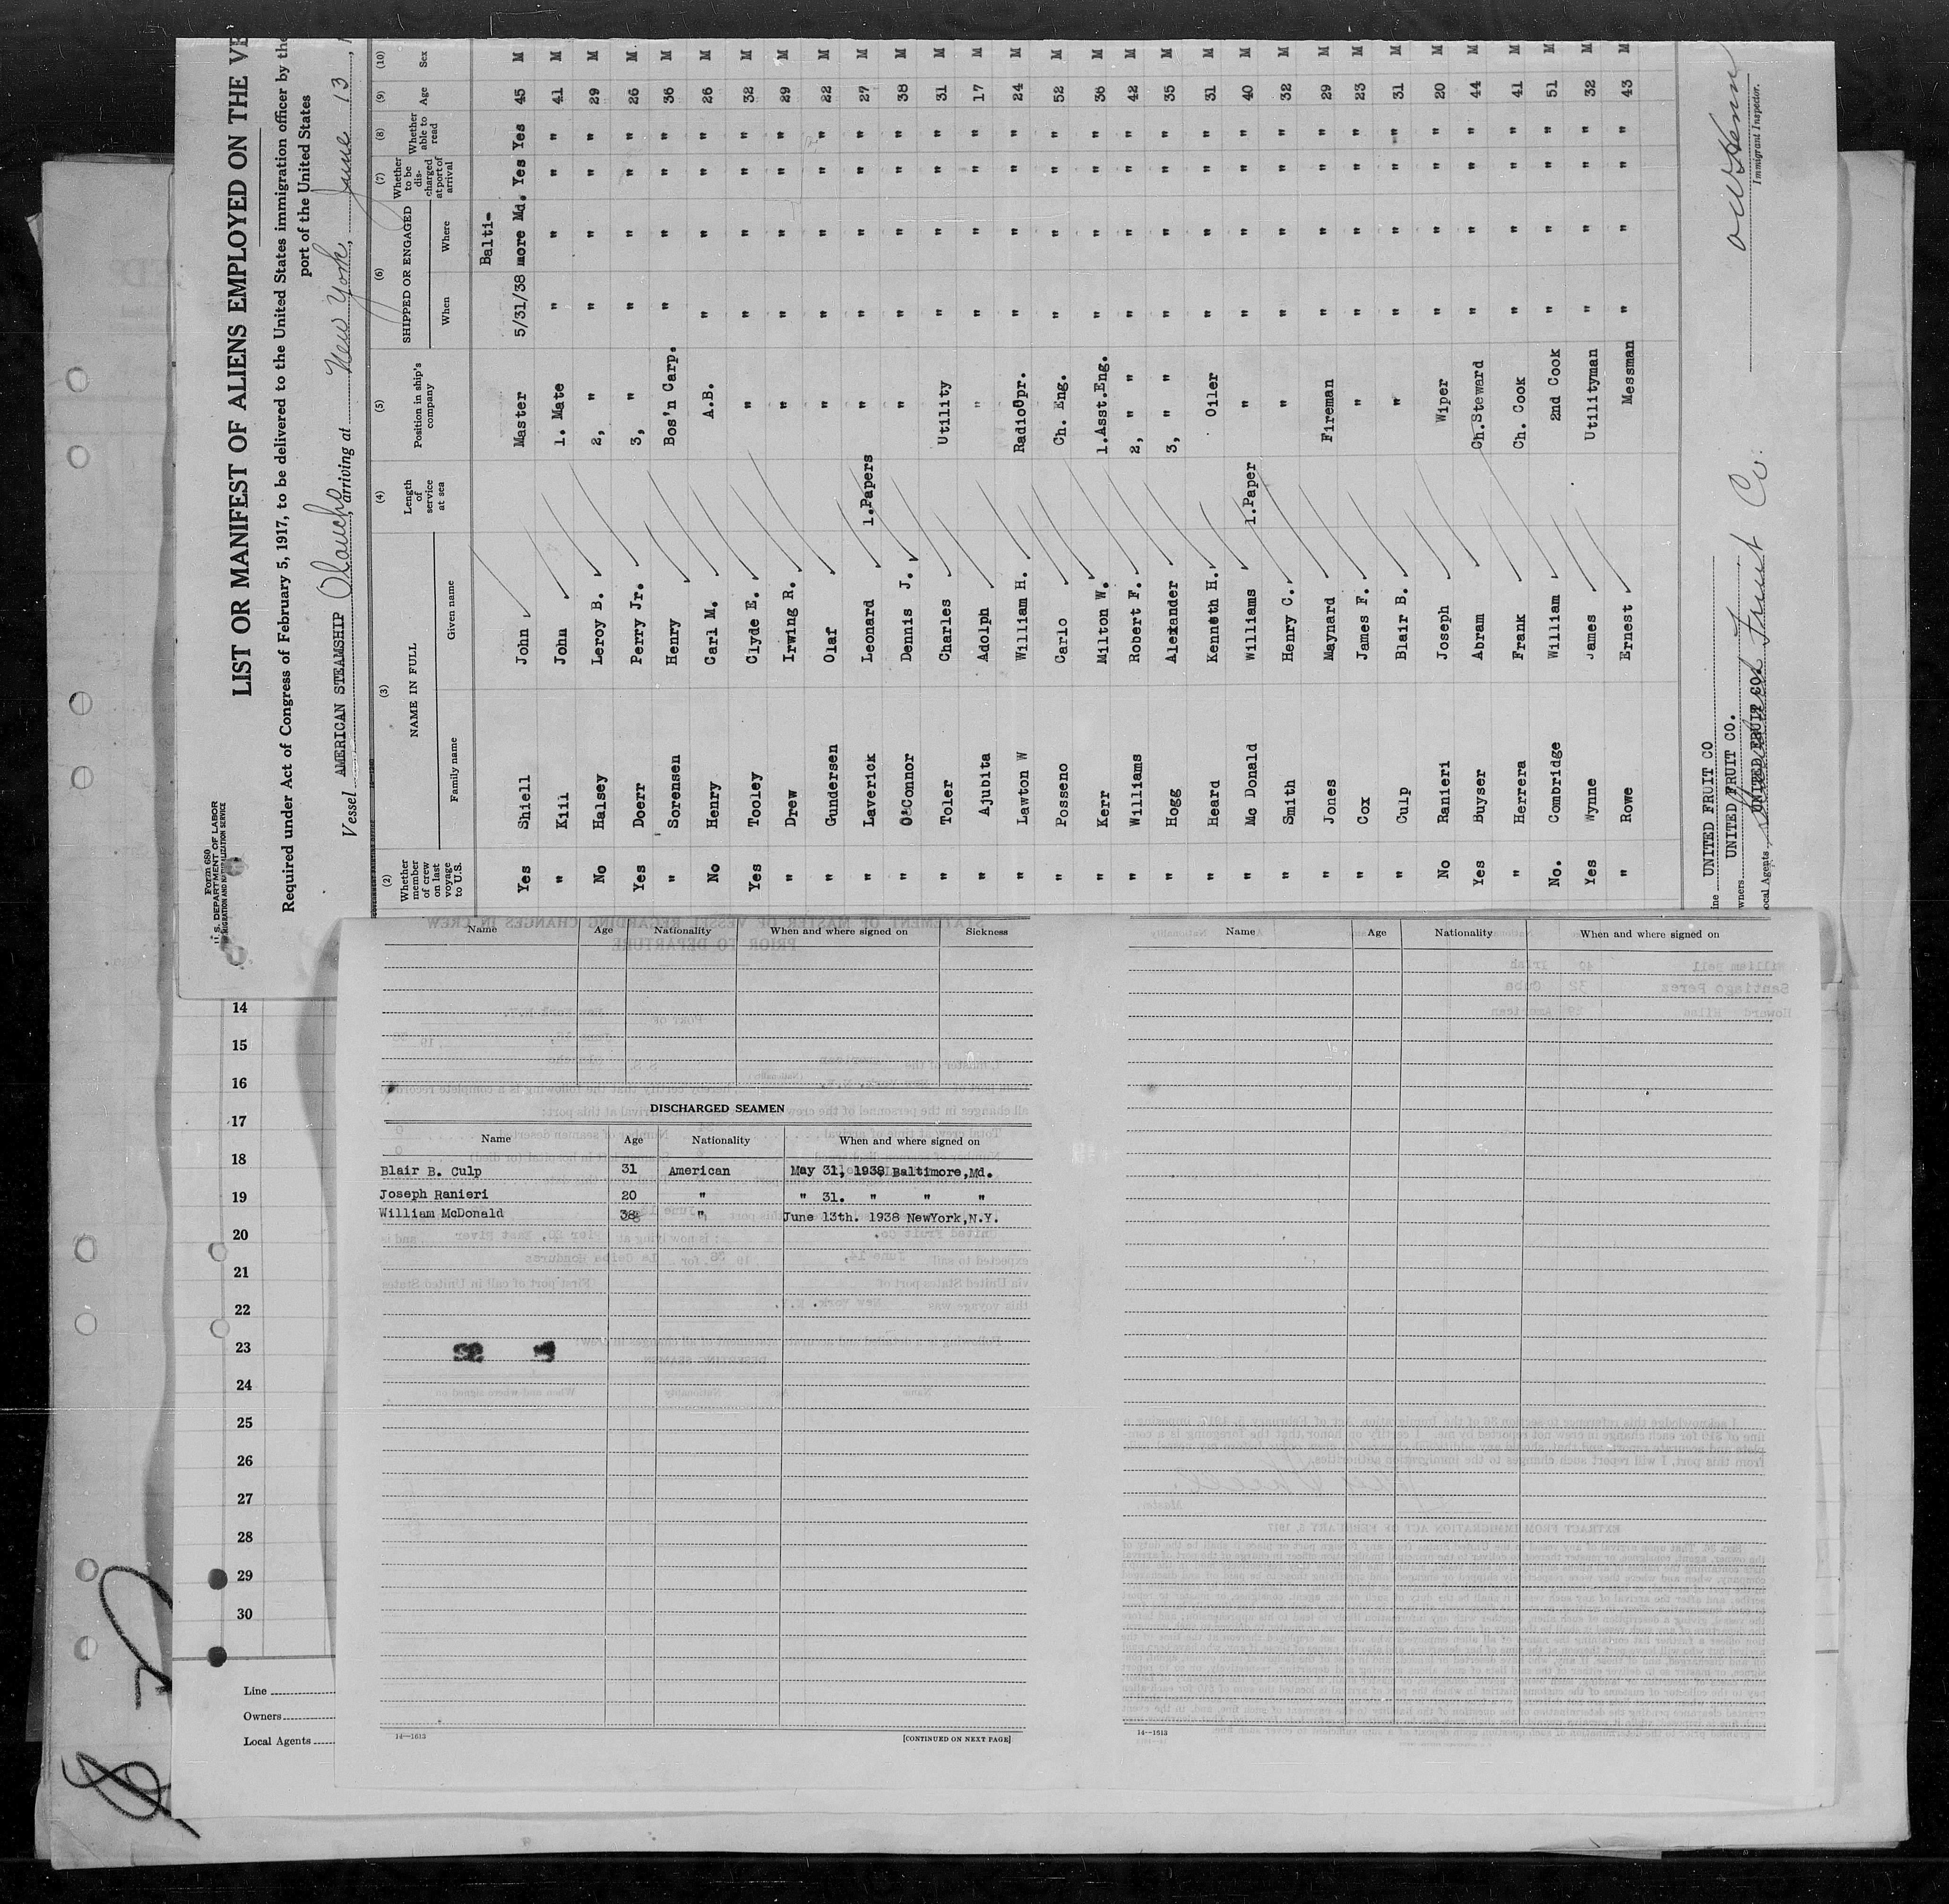 Form 680
U. S. DEPARTMENT OF LABOR
IMMIGRATION AND NATURALIZATION SERVICE
LIST OR MANIFEST OF ALIENS EMPLOYED ON THE VE
Required under Act of Congress of February 5, 1917, to be delivered to the United States immigration officer by the
port of the United States
Vessel AMERICAN STEAMSHIP Olancho, arriving at New York, June 13, 1
(2) (3) (4) (5) (6) (7) (8) (9) (10)
Whether member of crew on last voyage to U.S. NAME IN FULL Family name Given name Length of service at sea Position in ship's company SHIPPED OR ENGAGED When Where Whether to be discharged at port of arrival Whether able to read Age Sex
Balti-
Yes Shiell John Master 5/31/38 more Md. Yes Yes 45 M
" Kiil John 1. Mate " " " " 41 M
No Halsey Leroy B. 2, " " " " " 29 M
Yes Doerr Perry Jr. 3, " " " " " 26 M
" Sorensen Henry Bos'n Carp. " " " " 36 M
No Henry Carl M. A.B. " " " " 26 M
Yes Tooley Clyde E. " " " " " 32 M
" Drew Irwing R. " " " " " 29 M
" Gundersen Olaf " " " " " 22 M
" Laverick Leonard 1.Papers " " " " " 27 M
" O'Connor Dennis J. " " " " " 38 M
" Toler Charles Utility " " " " 31 M
" Ajubita Adolph " " " " " 17 M
" Lawton W William H. RadioOpr. " " " " 24 M
" Posseno Carlo Ch. Eng. " " " " 52 M
" Kerr Milton W. 1.Asst.Eng. " " " " 36 M
" Williams Robert F. 2, " " " " " " 42 M
" Hogg Alexander 3, " " " " " " 35 M
" Heard Kenneth H. Oiler " " " " 31 M
" Mc Donald Williams 1.Paper " " " " " 40 M
" Smith Henry C. " " " " " 32 M
" Jones Maynard Fireman " " " " 29 M
" Cox James F. " " " " " 23 M
" Culp Blair B. " " " " " 31 M
No Ranieri Joseph Wiper " " " " 20 M
Yes Buyser Abram Ch.Steward " " " " 44 M
" Herrera Frank Ch. Cook " " " " 41 M
No. Combridge William 2nd Cook " " " " 51 M
Yes Wynne James Utilityman " " " " 32 M
" Rowe Ernest Messman " " " " 43 M
ine UNITED FRUIT CO
wners UNITED FRUIT CO.
ocal Agents UNITED FRUIT CO. Fruit Co.
Immigrant Inspector.
Name Age Nationality When and where signed on Sickness
DISCHARGED SEAMEN
Name Age Nationality When and where signed on
Blair B. Culp 31 American May 31, 1938 Baltimore,Md.
Joseph Ranieri 20 " " 31. " " "
William McDonald 38 " June 13th. 1938 NewYork,N.Y.
14—1613
[CONTINUED ON NEXT PAGE]
Name Age Nationality When and where signed on
14—1613
14
15
16
17
18
19
20
21
22
23
24
25
26
27
28
29
30
Line
Owners
Local Agents